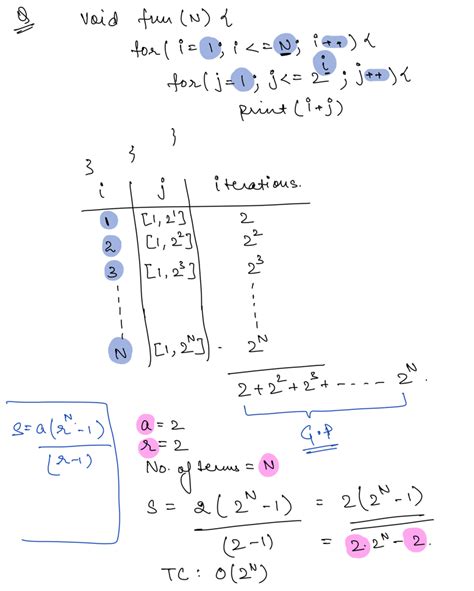 Q void fun (N) {
for( i = 1; i <= N; i++) {
for( j = 1; j <= 2^i ; j++) {
print (i+j)
} } }
i j iterations.
1 [1, 2^1] 2
2 [1, 2^2] 2^2
3 [1, 2^3] 2^3
N [1, 2^N] . 2^N
2 + 2^2 + 2^3 + - - - - 2^N .
G.P
S = a(r^N - 1) / (r-1)
a = 2
r = 2
No. of terms = N
S = 2 ( 2^N - 1) / (2-1) = 2(2^N - 1)
= 2. 2^N - 2.
TC : O(2^N)